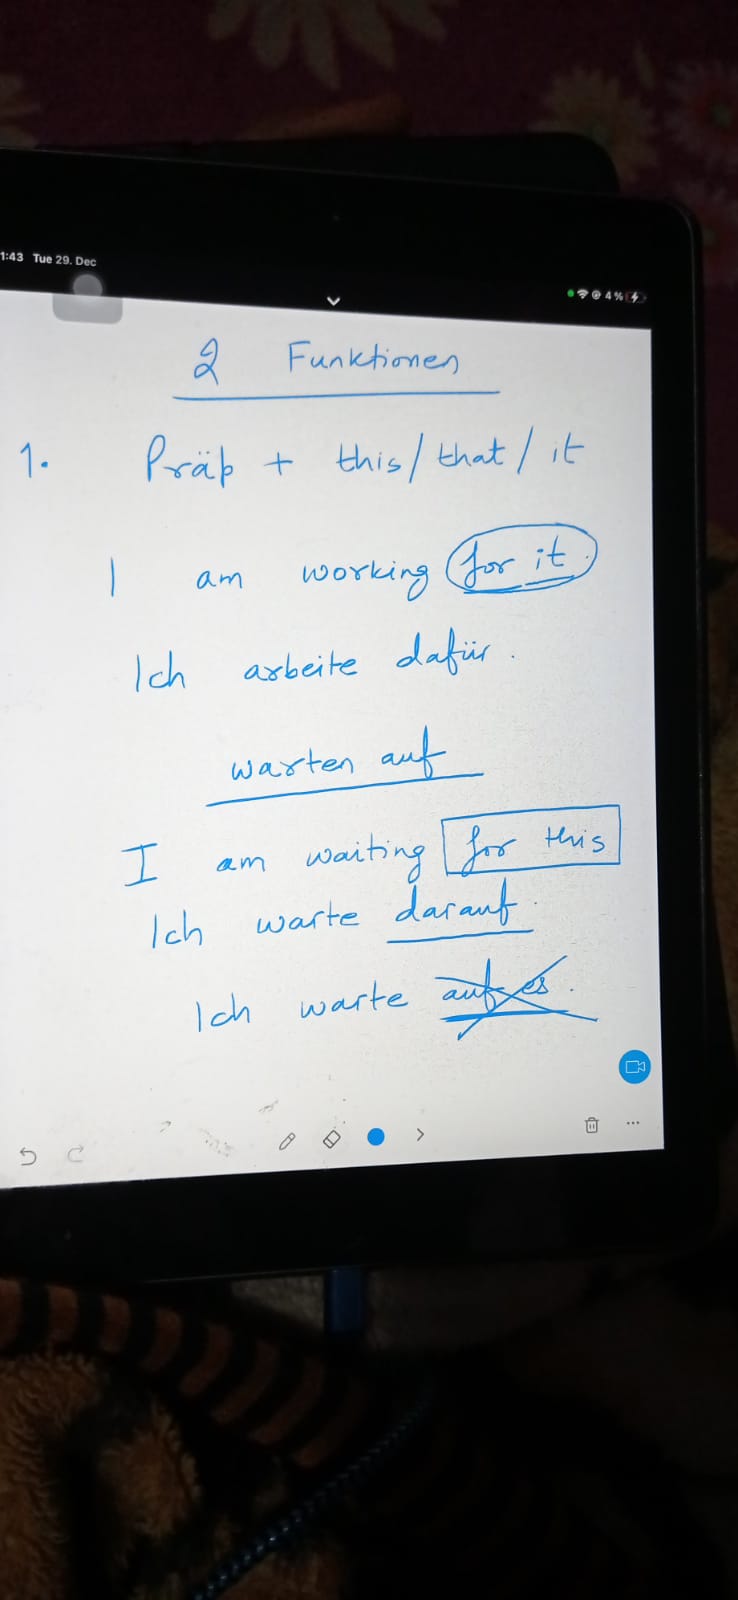 1:43 Tue 29. Dec
4%
2 Funktionen
1. Präp + this/that/it
I am working for it.
Ich arbeite dafür.
warten auf
I am waiting for this
Ich warte darauf.
Ich warte auf es.